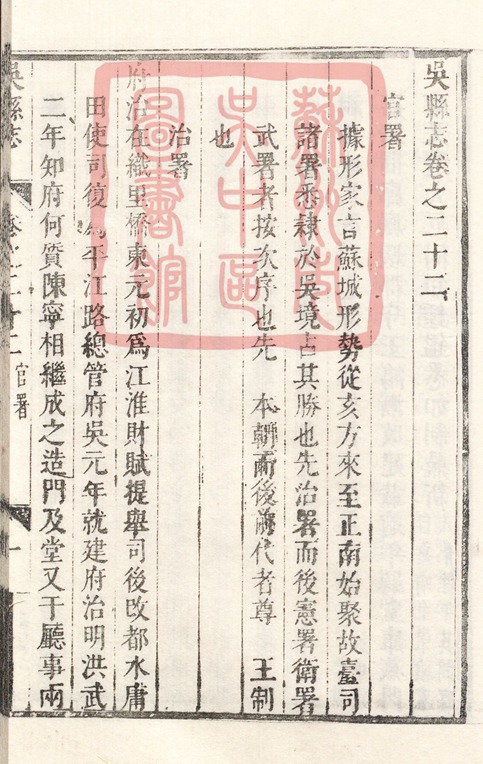 吳縣志卷之二十二
官署
據形家言蘇城形勢從亥方來至正南始聚故臺司
諸署悉隸於吳境占其勝也先治署而後憲署衛署
武署者按次序也先 本朝而後前代者尊 王制
也
治署
府治在織里橋東元初爲江淮財賦提舉司後改都水庸
田使司復爲平江路總管府吳元年就建府治明洪武
二年知府何質陳寧相繼成之造門及堂又于廳事兩
吳縣志 卷之二十二 官署 一
蘇州市
吳中區
圖書館